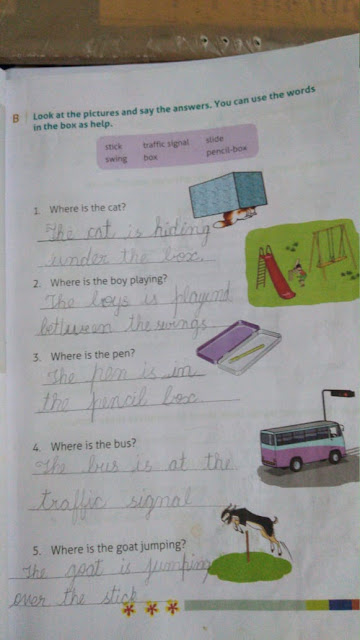 B Look at the pictures and say the answers. You can use the words
in the box as help.
stick traffic signal slide
swing box pencil-box
1. Where is the cat?
The cat is hiding
under the box.
2. Where is the boy playing?
The boys is playind
between the swings
3. Where is the pen?
The pen is in
the pencil box.
4. Where is the bus?
The bus is at the
traffic signal
5. Where is the goat jumping?
The goat is jumping
over the stick